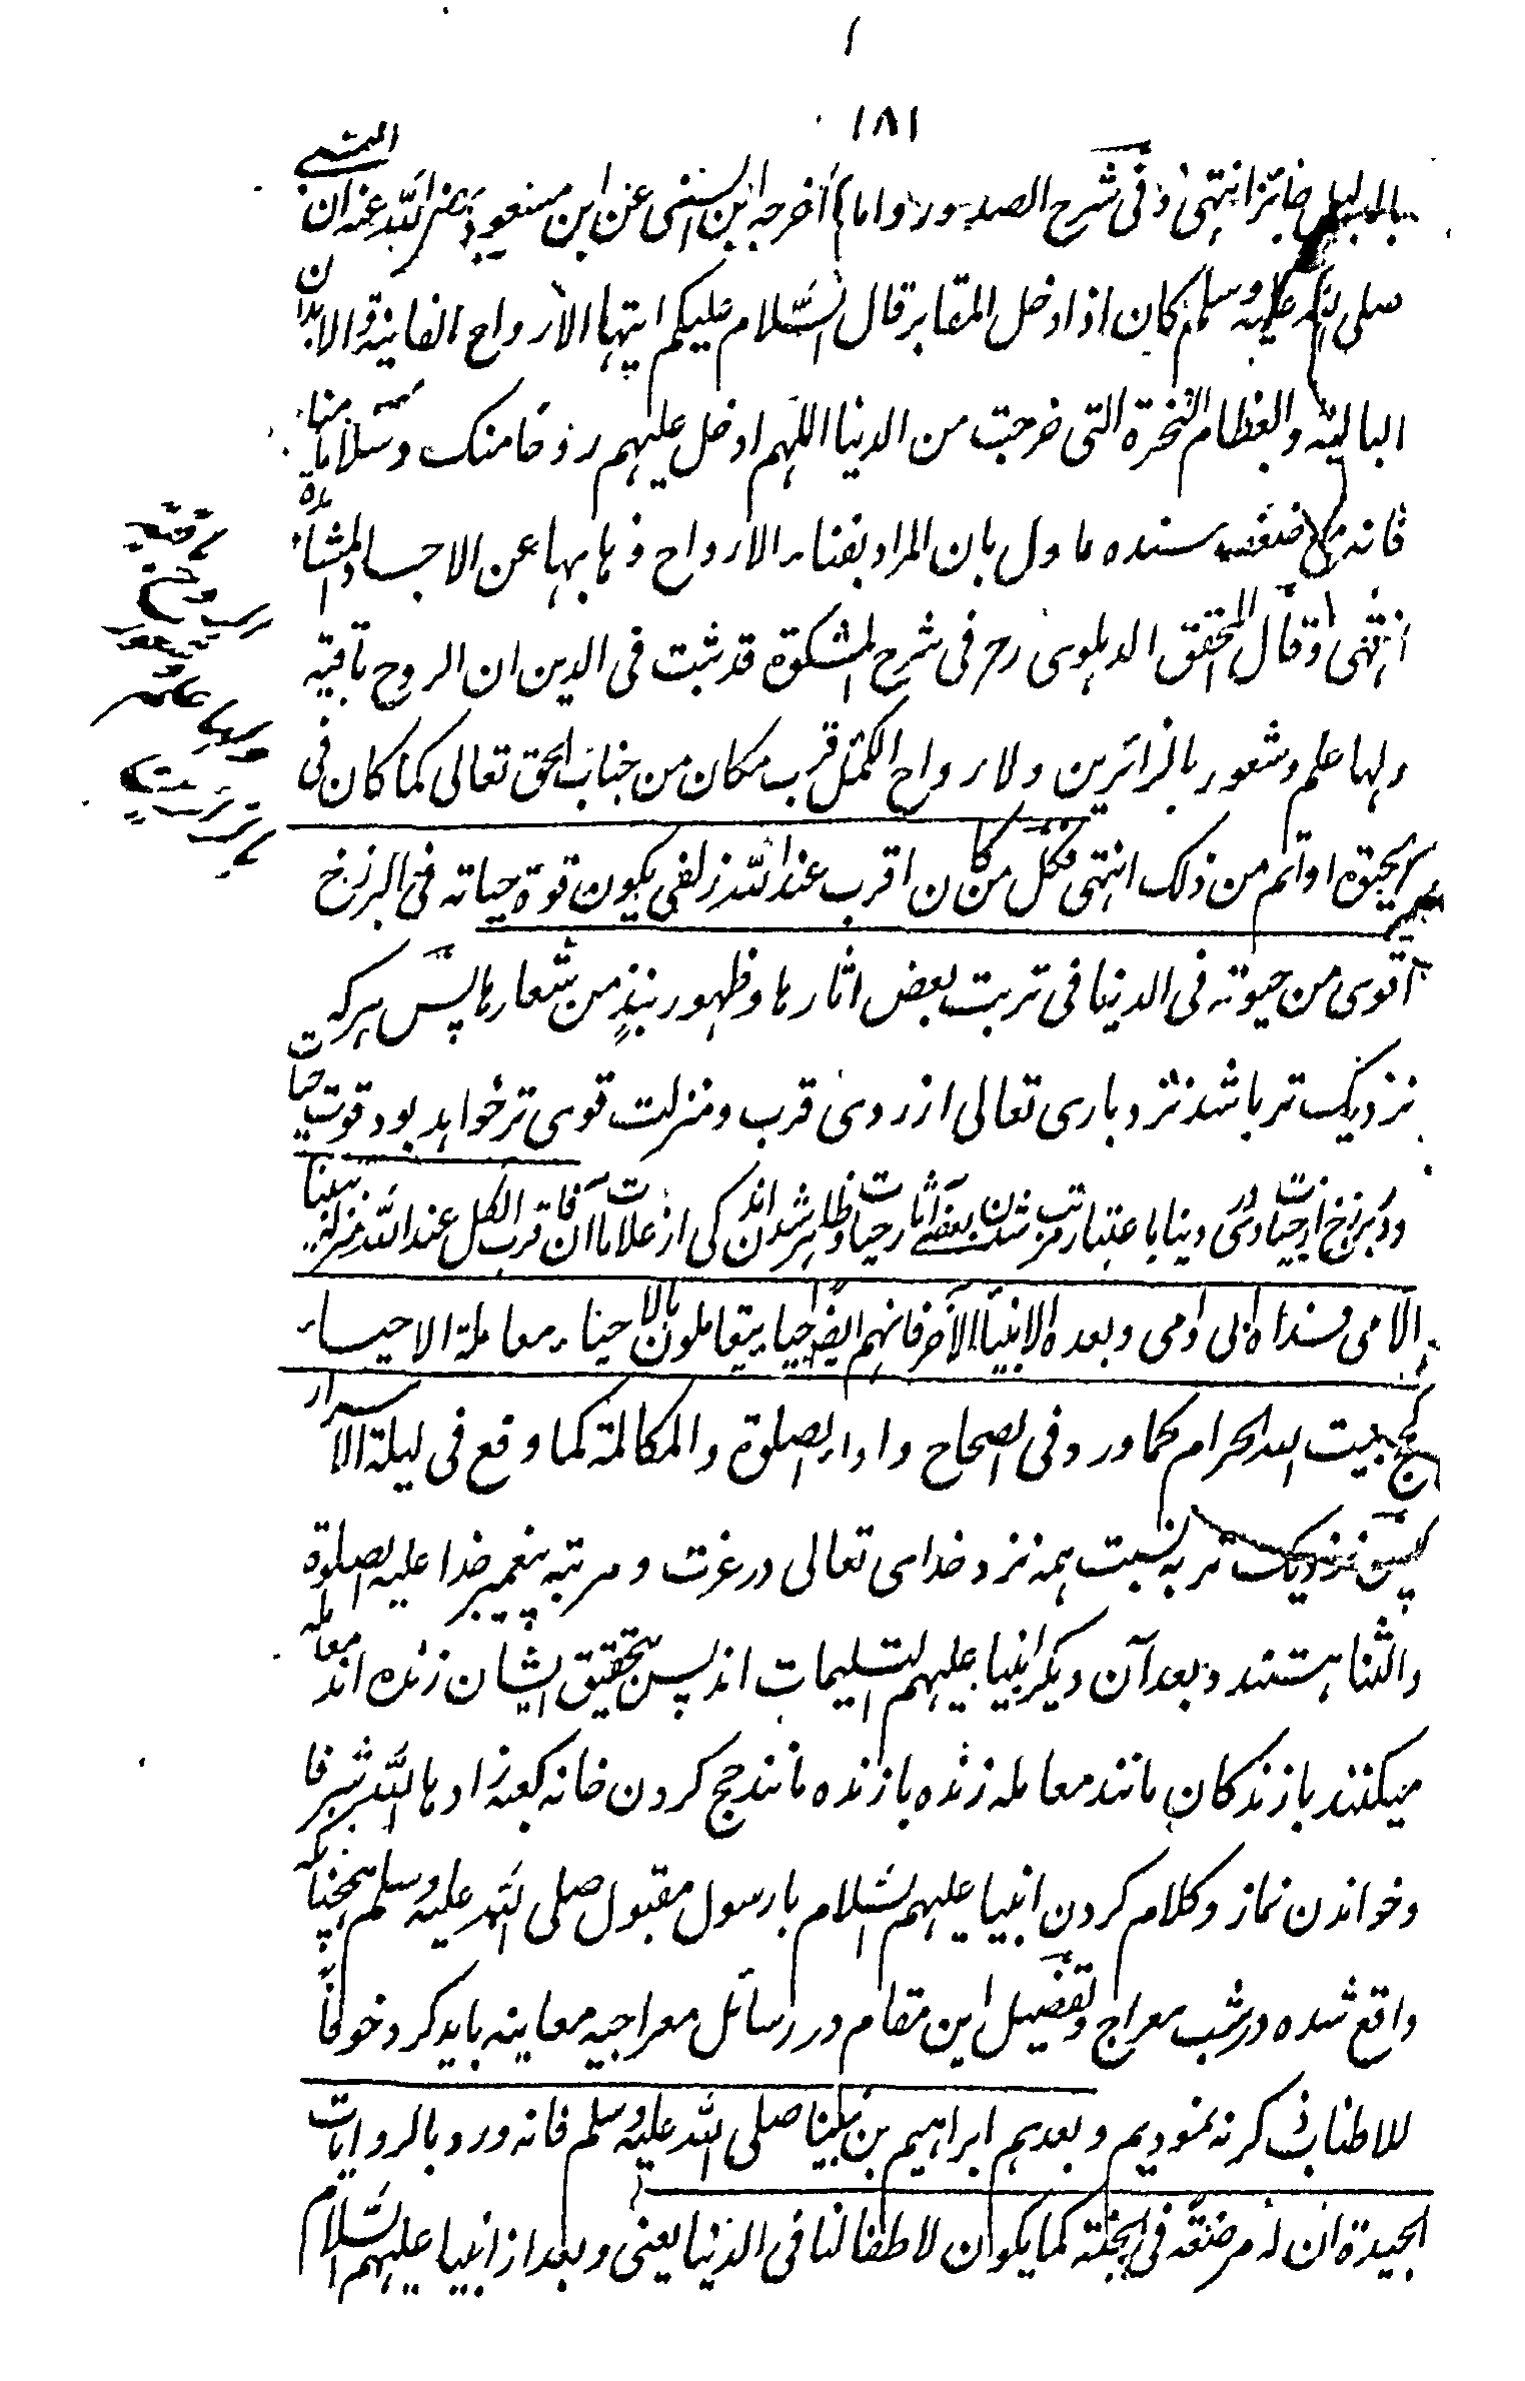 ١٨١
بالمبلى جائز انتهى وفى شرح الصدور واما ما أخرجه ابن السنى عن ابن مسعود رضى الله عنه ان النبى
صلى الله عليه وسلم كان اذا دخل المقابر قال السلام عليكم ايتها الارواح الفانية والابدان
البالية والعظام النخرة التى خرجت من الدنيا اللهم ادخل عليهم روحا منك وسلاما منا
فانه مع ضعف سنده ماول بان المراد بفناء الارواح ذهابها عن الاجساد المشاهدة
انتهى وقال المحقق الدهلوى رح فى شرح المشكوة قد ثبت فى الدين ان الروح باقية
ولها علم وشعور بالزائرين ولارواح الكمل قرب مكان من جناب الحق تعالى كما كان فى
الحيوة او اتم من ذلك انتهى فكل من كان اقرب عند الله زلفى يكون قوة حياته فى البرزخ
اقوى من حيوته فى الدنيا فى تربت بعض اثارها وظهور نبذ من شعارها پس هركه
نزديك تر باشد نزد بارى تعالى از روى قرب ومنزلت قوى تر خواهد بود قوت حيات
ودر برزخ از حيات وى در دنيا باعتبار مرتب شدن بعضے آثار حيات وظاهر شدن اندكى از علامات آن فاقرب الكل عند الله منزلة نبينا
الامى فداه ابى وامى وبعده الانبياء الاخر فانهم ايضا احياء يتعاملون بالاحياء معاملة الاحياء
كحج بيت الله الحرام كما ورد فى الصحاح واداء الصلوة والمكالمة كما وقع فى ليلة الاسرار
پس نزديك تر به نسبت همه نزد خداى تعالى در عزت ومرتبه پيغمبر خدا عليه الصلوة
والثنا هستند وبعد آن ديگر انبيا عليهم التسليمات اند پس بتحقيق ايشان زنده اند معامله
ميكنند با زندكان مانند معامله زنده با زنده مانند حج كردن خانه كعبه زادها الله شرفا
وخواندن نماز وكلام كردن انبيا عليهم السلام با رسول مقبول صلى الله عليه وسلم همچنانكه
واقع شده در شب معراج وتفصيل اين مقام در رسائل معراجيه معاينه بايد كرد خوفا
للاطناب ذكر نه نموديم وبعدهم ابراهيم بن نبينا صلى الله عليه وسلم فانه ورد بالروايات
الجيدة ان له مرضعة فى الجنة كما يكون لاطفالنا فى الدنيا يعنى وبعد از انبيا عليهم السلام